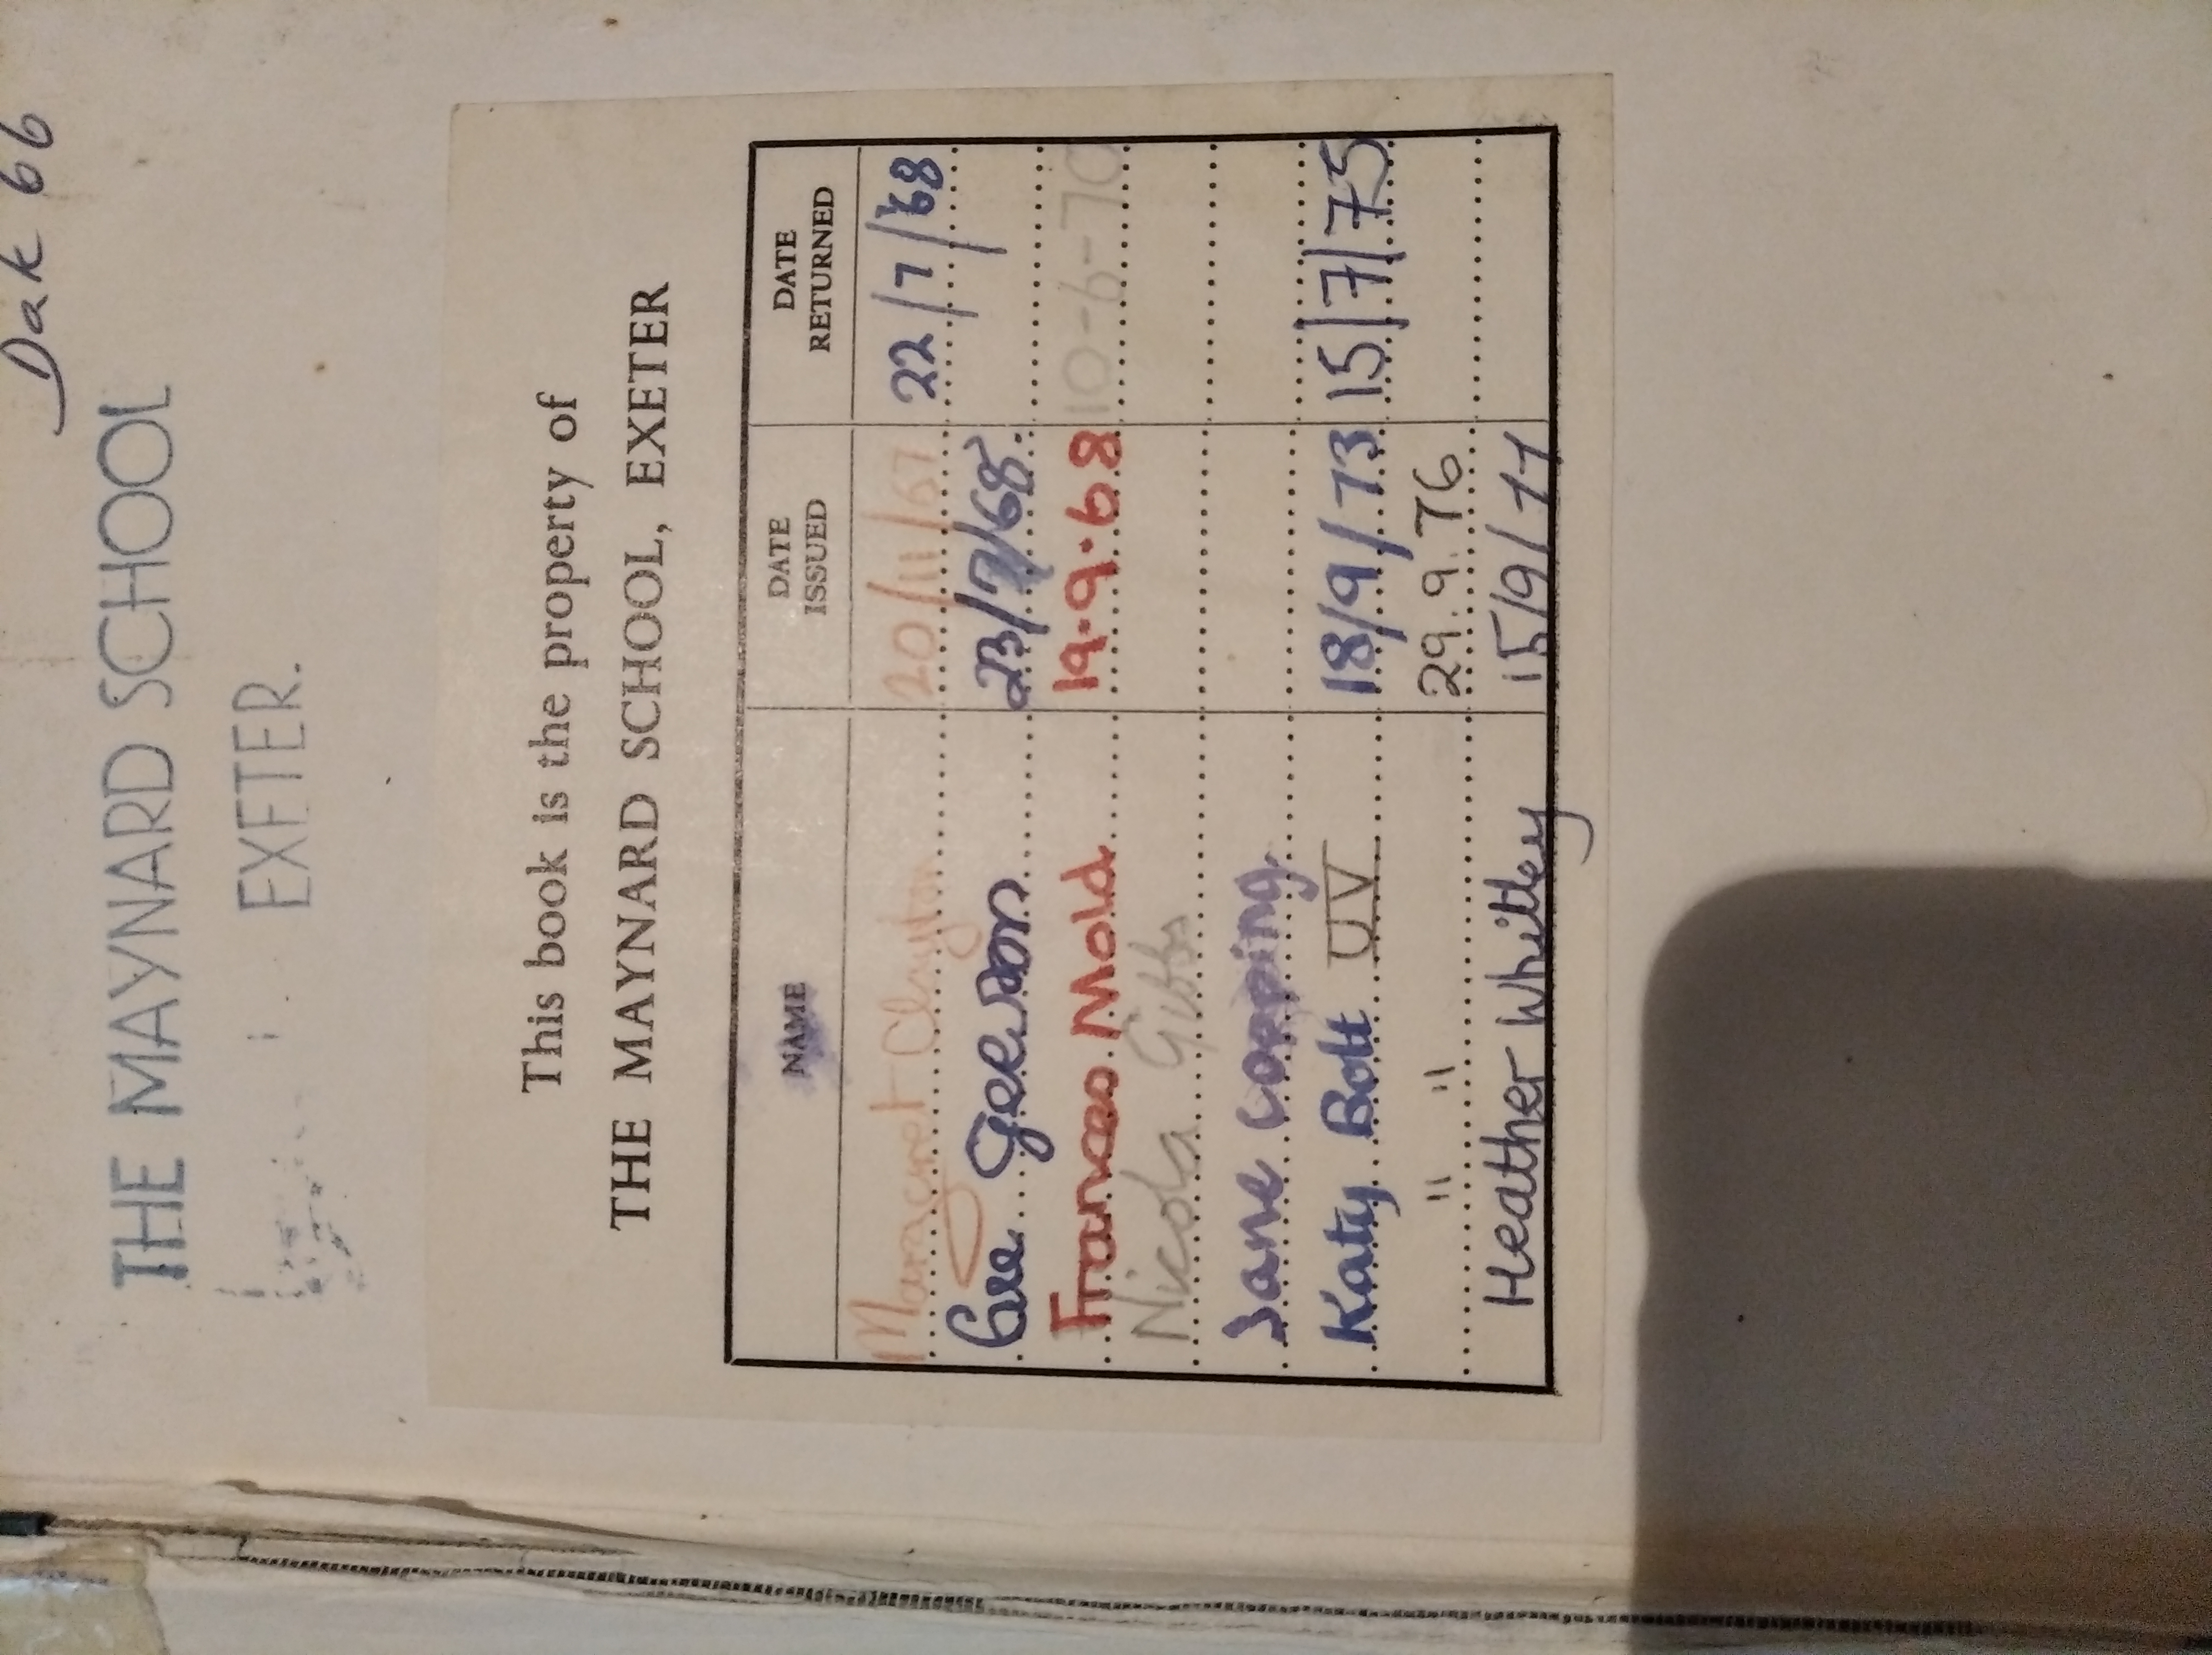 Dak 66
THE MAYNARD SCHOOL
EXETER.
This book is the property of
THE MAYNARD SCHOOL, EXETER
NAME DATE ISSUED DATE RETURNED
Margaret Clayton 20/11/67 22/7/68
23/7/68
Frances Mold 19.9.68 10-6-70
Nicola Gibbs
Jane Copping
Katy Bott UV 18/9/73 15/7/75
" " 29.9.76
Heather Whitley 15/9/77